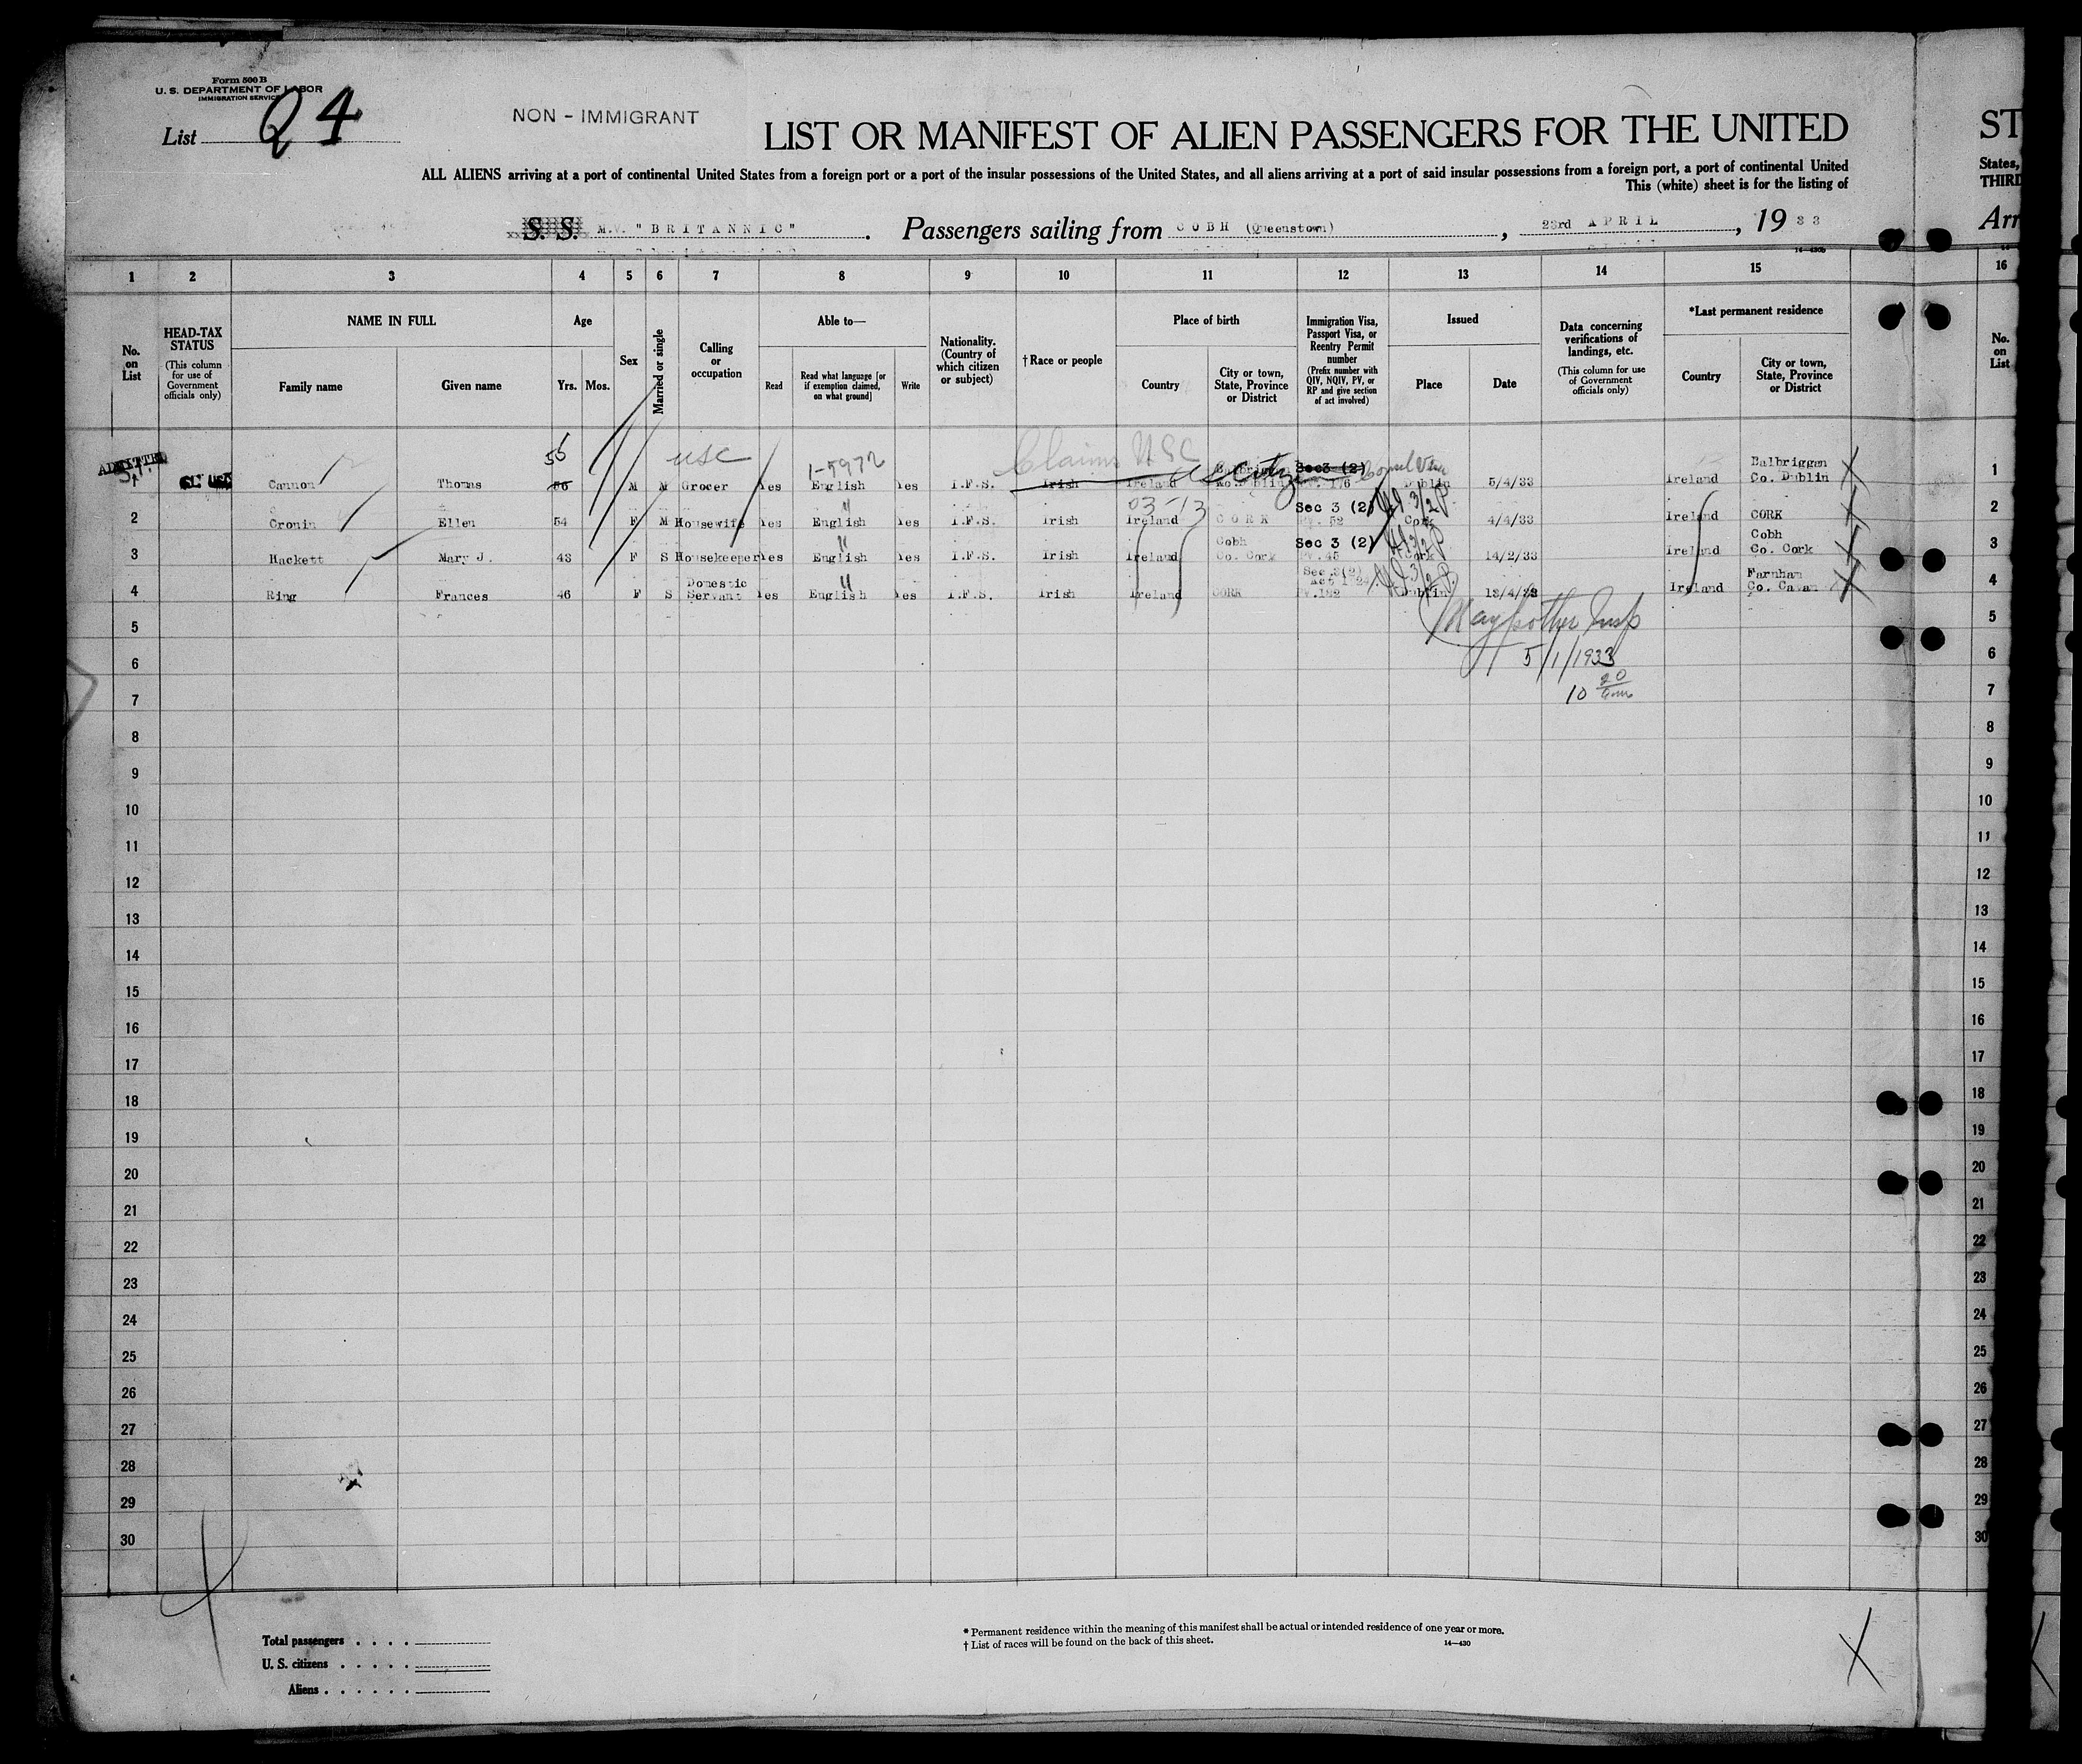 Form 500 B
U. S. DEPARTMENT OF LABOR
IMMIGRATION SERVICE
List 24
NON - IMMIGRANT
LIST OR MANIFEST OF ALIEN PASSENGERS FOR THE UNITED
ST
ALL ALIENS arriving at a port of continental United States from a foreign port or a port of the insular possessions of the United States, and all aliens arriving at a port of said insular possessions from a foreign port, a port of continental United
States,
This (white) sheet is for the listing of
THIRD
S. S. M.V. "BRITANNIC". Passengers sailing from COBH (Queenstown), 23rd APRIL, 1933
Arr
14—430b
1 2 3 4 5 6 7 8 9 10 11 12 13 14 15 16
No. on List
HEAD-TAX STATUS
(This column for use of Government officials only)
NAME IN FULL
Family name
Given name
Age
Yrs. Mos.
Sex
Married or single
Calling or occupation
Able to—
Read
Read what language [or if exemption claimed, on what ground]
Write
Nationality. (Country of which citizen or subject)
†Race or people
Place of birth
Country
City or town, State, Province or District
Immigration Visa, Passport Visa, or Reentry Permit number
(Prefix number with QIV, NQIV, PV, or RP and give section of act involved)
Issued
Place
Date
Data concerning verifications of landings, etc.
(This column for use of Government officials only)
*Last permanent residence
Country
City or town, State, Province or District
No. on List
ADMITTED
55 usc 1-5972 Claims USC citizen
Balbriggan
1 Cannon Thomas 56 M M Grocer Yes English Yes I.F.S. Irish Ireland Co. Dublin Sec 3 (2) Dublin 5/4/33 Ireland Co. Dublin 1
03-13
Sec 3 (2)
2 Cronin Ellen 54 F M Housewife Yes English Yes I.F.S. Irish Ireland CORK PV. 52 Cork 4/4/33 Ireland CORK 2
Cobh Sec 3 (2) Cobh
3 Hackett Mary J. 43 F S Housekeeper Yes English Yes I.F.S. Irish Ireland Co. Cork PV. 45 Cork 14/2/33 Ireland Co. Cork 3
Domestic Sec 3(2) Act 1924 Farnham
4 Ring Frances 46 F S Servant Yes English Yes I.F.S. Irish Ireland CORK PV. 192 Dublin 13/4/33 Ireland Co. Cavan 4
5 5
5/1/1933
6 6
10 20
7 7
8 8
9 9
10 10
11 11
12 12
13 13
14 14
15 15
16 16
17 17
18 18
19 19
20 20
21 21
22 22
23 23
24 24
25 25
26 26
27 27
28 28
29 29
30 30
Total passengers . . . .
U. S. citizens . . . . .
Aliens . . . . . .
* Permanent residence within the meaning of this manifest shall be actual or intended residence of one year or more.
† List of races will be found on the back of this sheet.
14—430